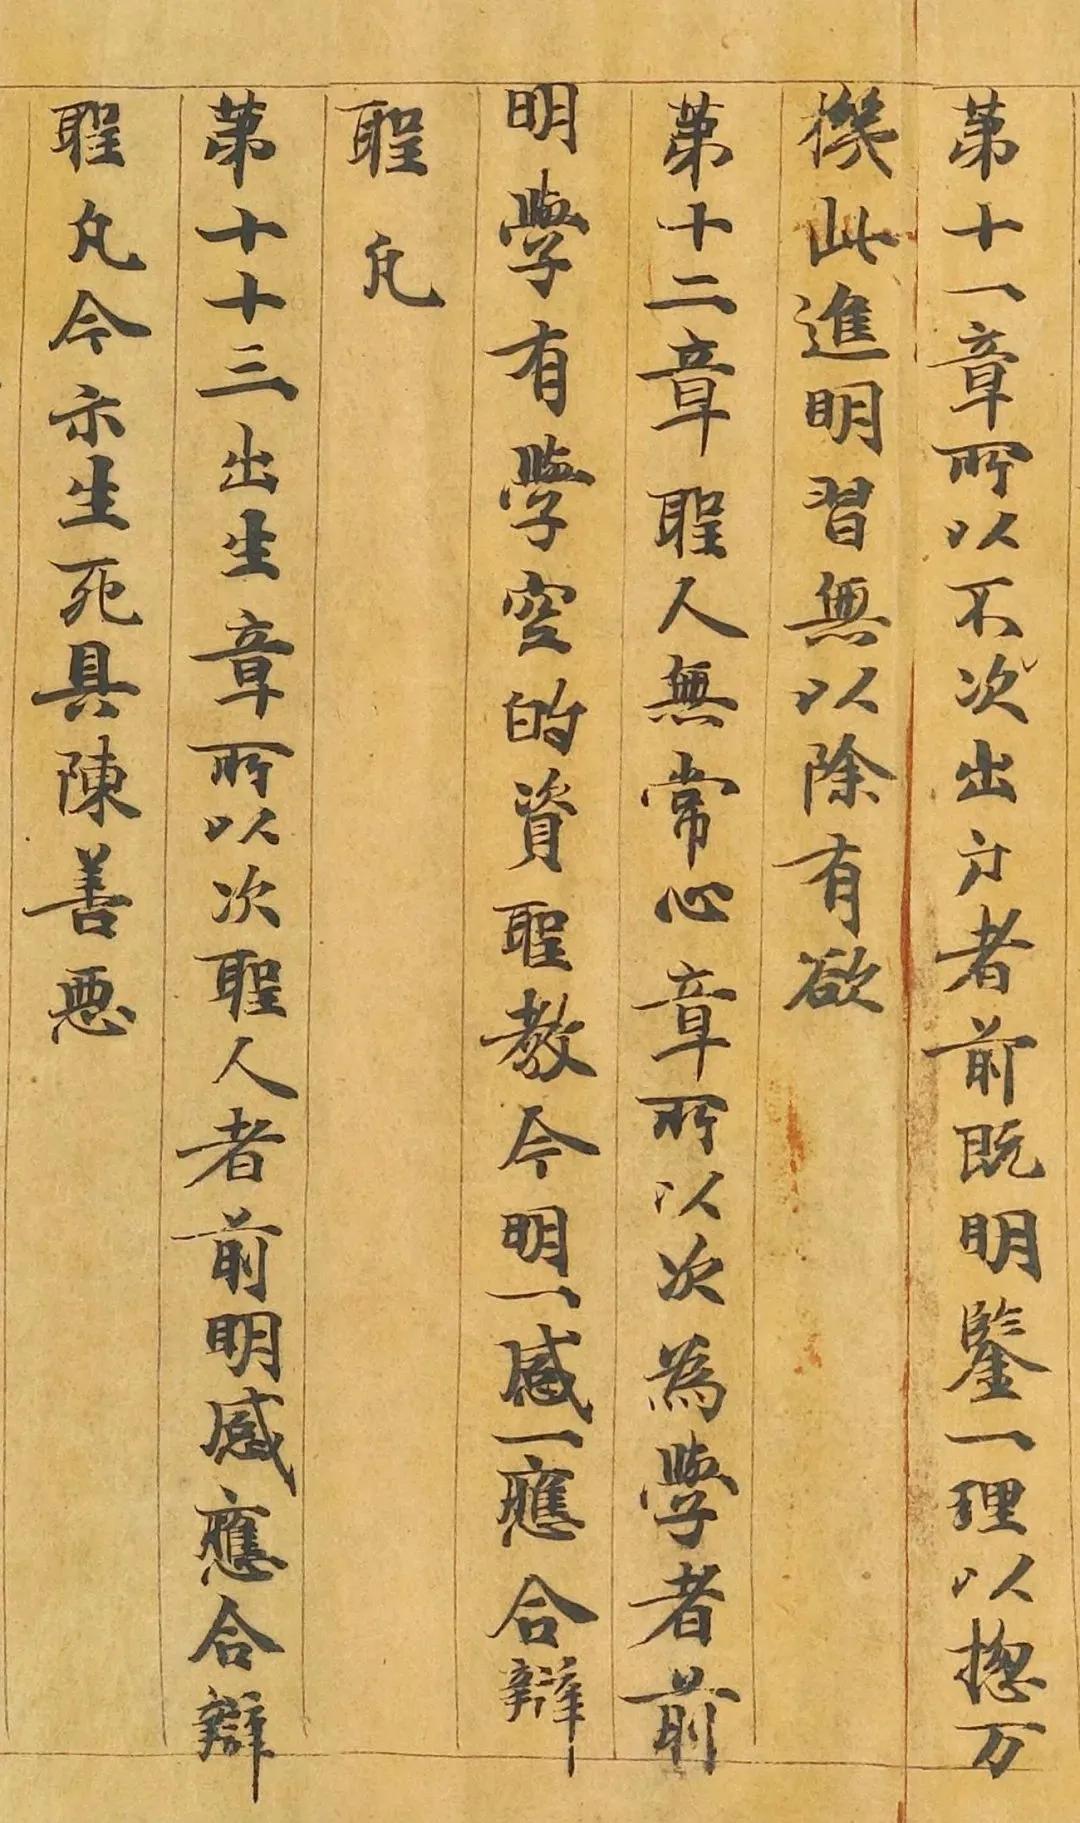 第十一章所以不次出方者前既明鑒一理以揔万
機此進明習無以除有欲
第十二章聖人無常心章所以次為學者前
明學有學空的資聖教今明一感一應合辯
聖凡
第十十三出生章所以次聖人者前明感應合辯
聖凡今示生死具陳善惡